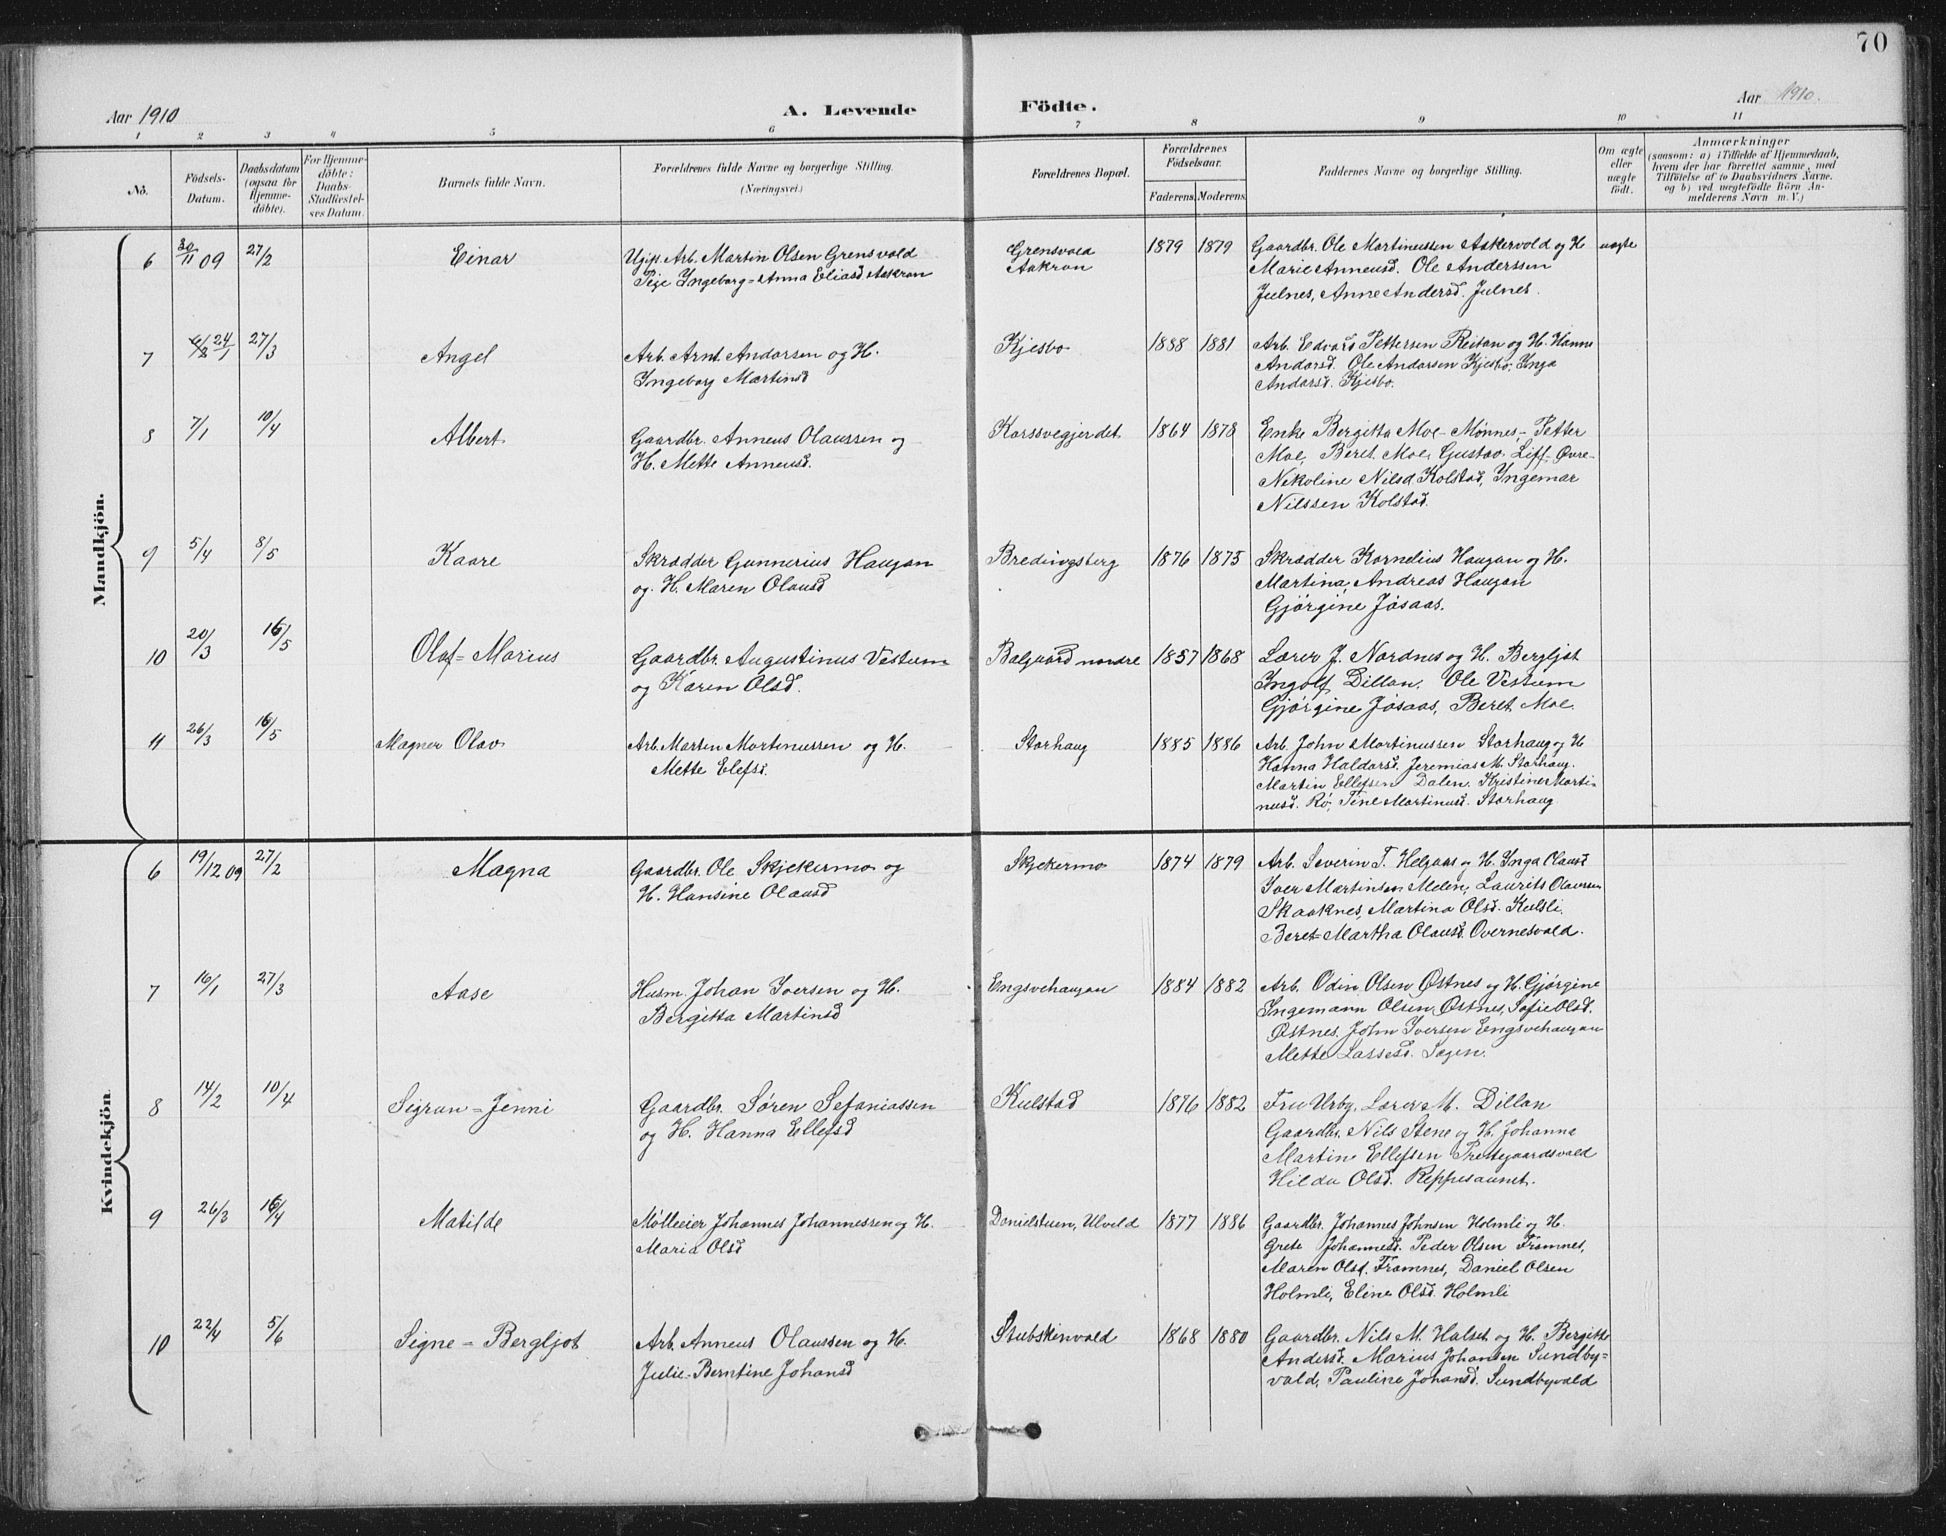 70
Aar 1910
A. Levende
Födte.
Aar 1910.
1 2 3 4 5 6 7 8 9 10 11
No.
Födsels-
Datum.
Daabsdatum
(ogsaa for
Hjemme-
döbte).
For Hjemme-
döbte:
Daabs-
Stadfæstel-
ses Datum.
Barnets fulde Navn.
Forældrenes fulde Navne og borgerlige Stilling.
(Næringsvei.)
Forældrenes Bopæl.
Forældrenes
Födselsaar.
Faderens. Moderens.
Faddernes Navne og borgerlige Stilling.
Om ægte
eller
uægte
födt.
Anmærkninger
(saasom: a) i Tilfælde af Hjemmedaab,
hvem der har forrettet samme, med
Tilföielse af to Daabsvidners Navne.
og b) ved uægtefödte Börn An-
melderens Navn m. V.)
Mandkjön.
6 30/11 09 27/2 Einar
Ugift Arb. Martin Olsen Grensvold
Pige Ingeborg=Anna Eliasd Aakran
Grensvold
Aakran
1879 1879
Gaardbr. Ole Martinussen Askervold og H
Marie Anneusd. Ole Anderssen
Julnes, Anne Andersd. Julnes.
uægte
7 24/1 27/3 Angel
Arb. Arnt Andorsen og H.
Ingeborg Martinsd
Kjesbo
1888 1881
Arb. Edvard Pettersen Reitan og H. Hanne
Andorsd. Ole Andorsen Kjesbo, Inga
Andorsd. Kjesbo.
8 7/1 10/4 Albert
Gaardbr. Anneus Olaussen og
H. Mette Anneusd.
Korssvegjerdet
1864 1878
Enke Bergitta Moe-Mönnes, Petter
Moe, Beret Moe, Gustav Liff-Øvre-
Nikoline Nilsd Kolstad, Ingemar
Nilssen Kolstad.
9 5/4 8/5 Kaare
Skrædder Gunnerius Haugan
og H. Maren Olausd
Bredingsberg
1876 1875
Skrædder Kornelius Haugan og H.
Martina, Andreas Haugan
Gjørgine Jøsaas.
10 20/3 16/5 Olaf=Marius
Gaardbr. Augustinus Vestum
og Karen Olsd.
Balgaard nordre
1857 1868
Lærer J. Nordnes og H. Bergljot
Ingolf Dillan. Ole Vestum
Gjørgine Jøsaas, Beret Moe.
11 26/3 16/5 Magner Olav
Arb. Marten Martinussen og H.
Mette Elefsd.
Storhaug
1885 1886
Arb. John Martinussen Storhaug og H
Hanna Haldorsd. Jeremias M. Storhaug.
Martin Ellefsen Dalen, Kristine Marti-
nusd. Rø, Tine Martinusd. Storhaug
Kvindekjön.
6 19/12 09 27/2 Magna
Gaardbr. Ole Skjekermo og
H. Hansine Olausd
Skjekermo
1874 1879
Arb. Severin T. Helgaas og H. Inga Olausd
Iver Martinsen Melen, Laurits Olaussen
Skaaknes, Martina Olsd. Kulsli.
Beret=Martha Olausd. Overnesvald.
7 16/1 27/3 Aase
Husm. Johan Iversen og H.
Bergitta Martinsd
Engsvehaugan
1884 1882
Arb. Odin Olsen Østnes og H. Gjørgine
Ingemann Olsen Østnes, Sofie Olsd.
Østnes, John Iversen Engsvehaugan
Mette Lassesd. Sagen.
8 14/2 10/4 Sigrun=Jenni
Gaardbr. Søren Sefaniassen
og H. Hanna Ellefsd
Kulstad
1876 1882
Fru Urby, Lærer M. Dillan
Gaardbr. Nils Stene og H. Johanna
Martin Ellefsen Prestegaardsvald
Hilda Olsd. Reppesaunet.
9 26/3 16/4 Matilde
Mølleeier Johannes Johannessen og H.
Maria Olsd
Danielstuen, Ulvild
1877 1886
Gaardbr. Johannes Johnsen Holmli og H.
Grete Johannesd. Peder Olsen Framnes,
Maren Olsd. Framnes, Daniel Olsen
Holmli, Eline Olsd. Holmli
10 22/4 5/6 Signe=Bergljot
Arb. Anneus Olaussen og H.
Julie=Berntine Johansd
Stubskinvald
1868 1880
Gaardbr. Nils M. Halset og H. Bergitte
Andersd. Marius Johansen Sundby=
vald, Pauline Johansd. Sundbyvald